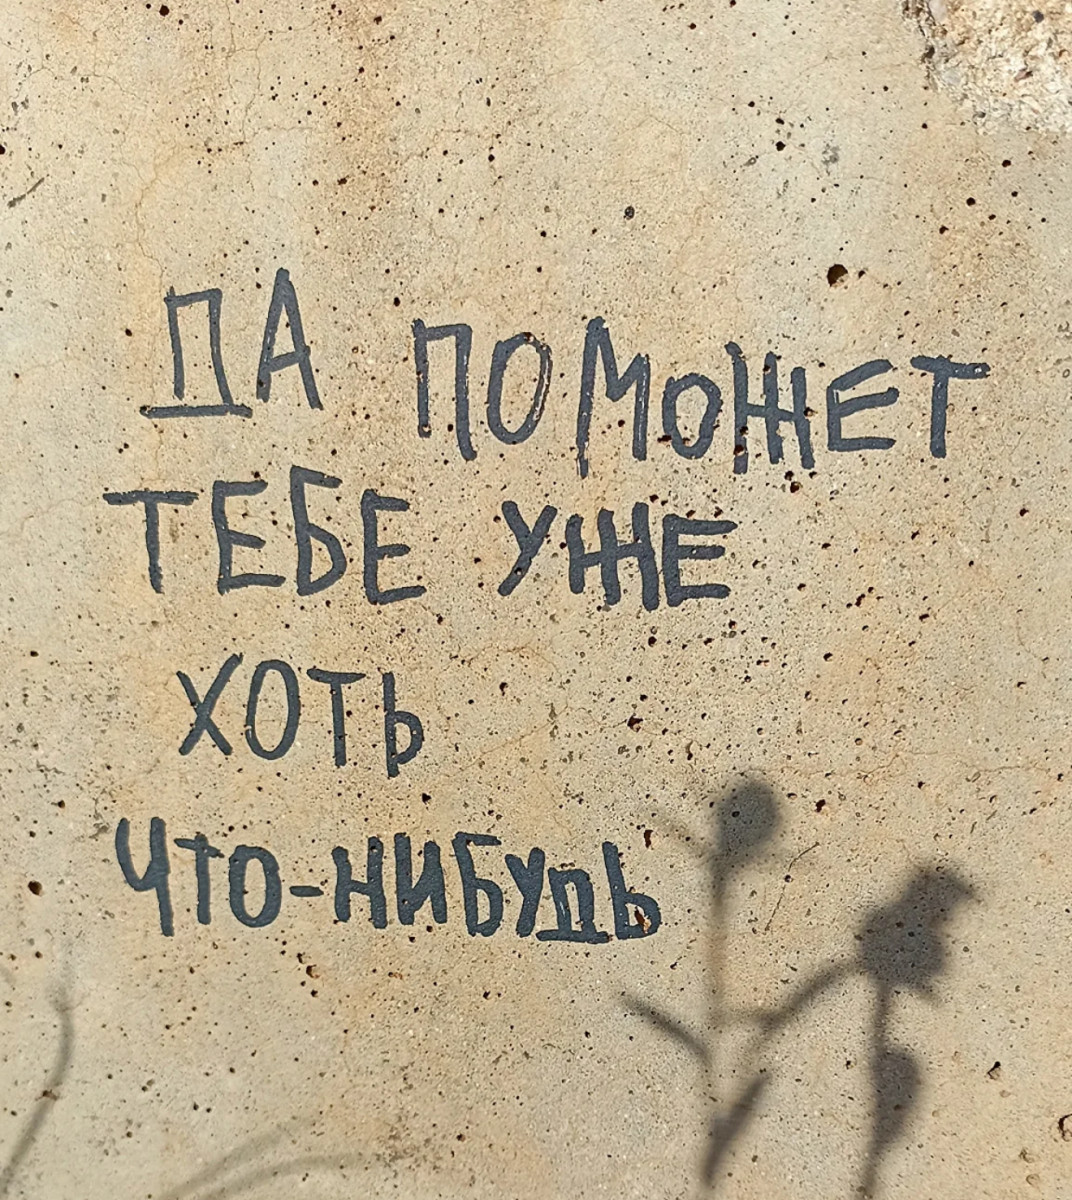 ДА ПОМОЖЕТ
ТЕБЕ УЖЕ
ХОТЬ
ЧТО-НИБУДЬ